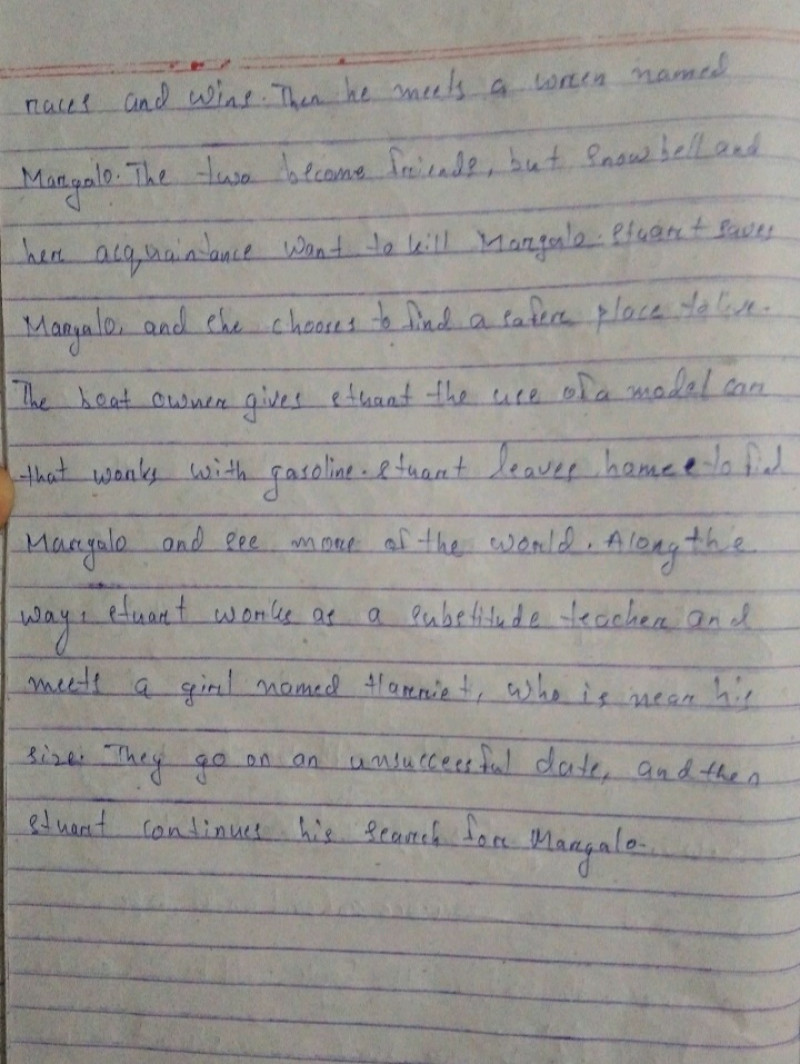 races and wins. Then he meets a wren named
Margalo. The two become friends, but Snowbell and
her acquaintance want to kill Margalo. Stuart saves
Margalo, and she chooses to find a safer place to live.
The boat owner gives Stuart the use of a model car
that works with gasoline. Stuart leaves home to find
Margalo and see more of the world. Along the
way, Stuart works as a substitude teacher and
meets a girl named Harriet, who is near his
size. They go on an unsuccessful date, and then
Stuart continues his search for Margalo.